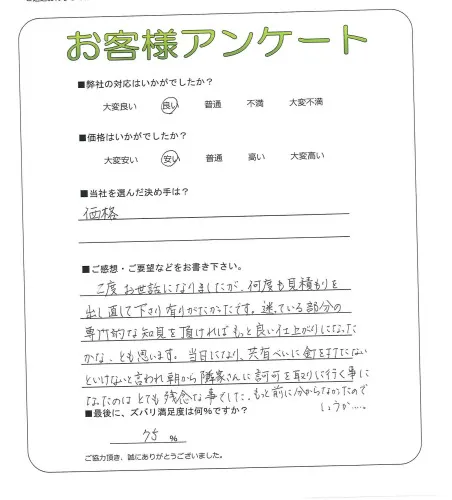 お客様アンケート
■弊社の対応はいかがでしたか?
大変良い 良い 普通 不満 大変不満
■価格はいかがでしたか?
大変安い 安い 普通 高い 大変高い
■当社を選んだ決め手は?
価格
■ご感想・ご要望などをお書き下さい。
2度お世話になりましたが、何度も見積もりを
出し直して下さり有りがたかったです。迷っている部分の
専門的な知見を頂ければもっと良い仕上がりになった
かな、とも思います。当日になり、共有べいに釘を打たない
といけないと言われ朝から隣家さんに許可を取りに行く事に
なったのはとても残念な事でした。もっと前に分からなかったので
しょうか…。
■最後に、ズバリ満足度は何%ですか?
75 %
ご協力頂き、誠にありがとうございました。